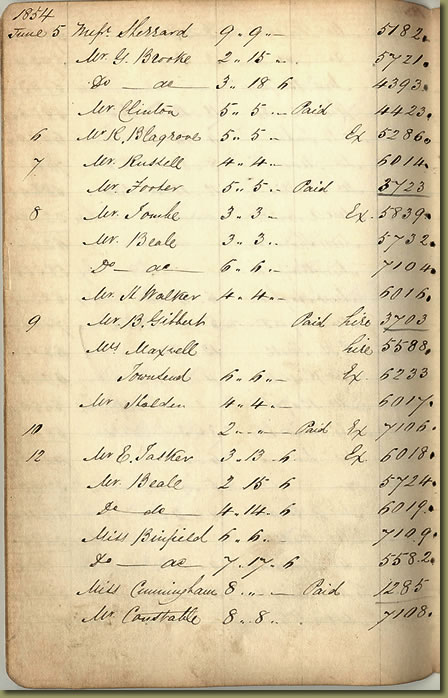 1854
June 5 Messrs Sherrard 9 " 9 " — 5182.
Mr. G. Brooke 2 " 15 " . 5721.
Do — do 3 " 18 6 4393.
Mr Clinton 5 " 5 " — Paid 4423.
6 Mr K. Blagrove 5 " 5 " — Ex 5286.
7 Mr. Russell 4 " 4 " — 6014.
Mr. 5 " 5 " Paid 3723
8 Mr. 3 " 3 " — Ex. 5839.
Mr. Beale 3 " 3 " . 5732.
Do — do — 6 " 6 " — 7104.
Mr. H Walker 4 " 4 " — 6016.
9 Mr. B. Gibbert Paid hire 3703
Mrs Maxwell hire 5588.
Townsend 6 " 6 " — Ex. 6233
Mr Holden 4 " 4 " — 6017.
10 2 " — " — Paid Ex 7106.
12 Mr E. Tasker 3 " 13 " 6 Ex. 6018.
Mr. Beale 2 15 6 5724.
Do — do — 4 " 14 " 6 6019.
Miss Binfield 6 " 6 " — 7109.
Do — do 7 " 17 " 6 5582.
Miss Cunningham 8 " — " — Paid 1285
Mr. Constable 8 " 8 " . 7108.